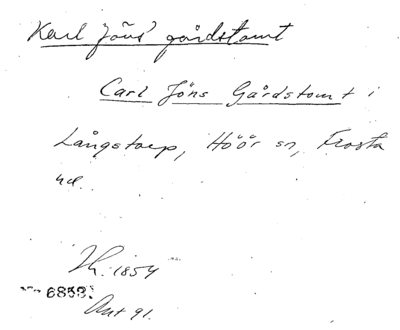 Karl Jöns' gårdstomt
Carl Jöns Gårdstomt i
Långstorp, Höör sn, Frosta
hd.
Th. 1854
6858.
Ant 91.